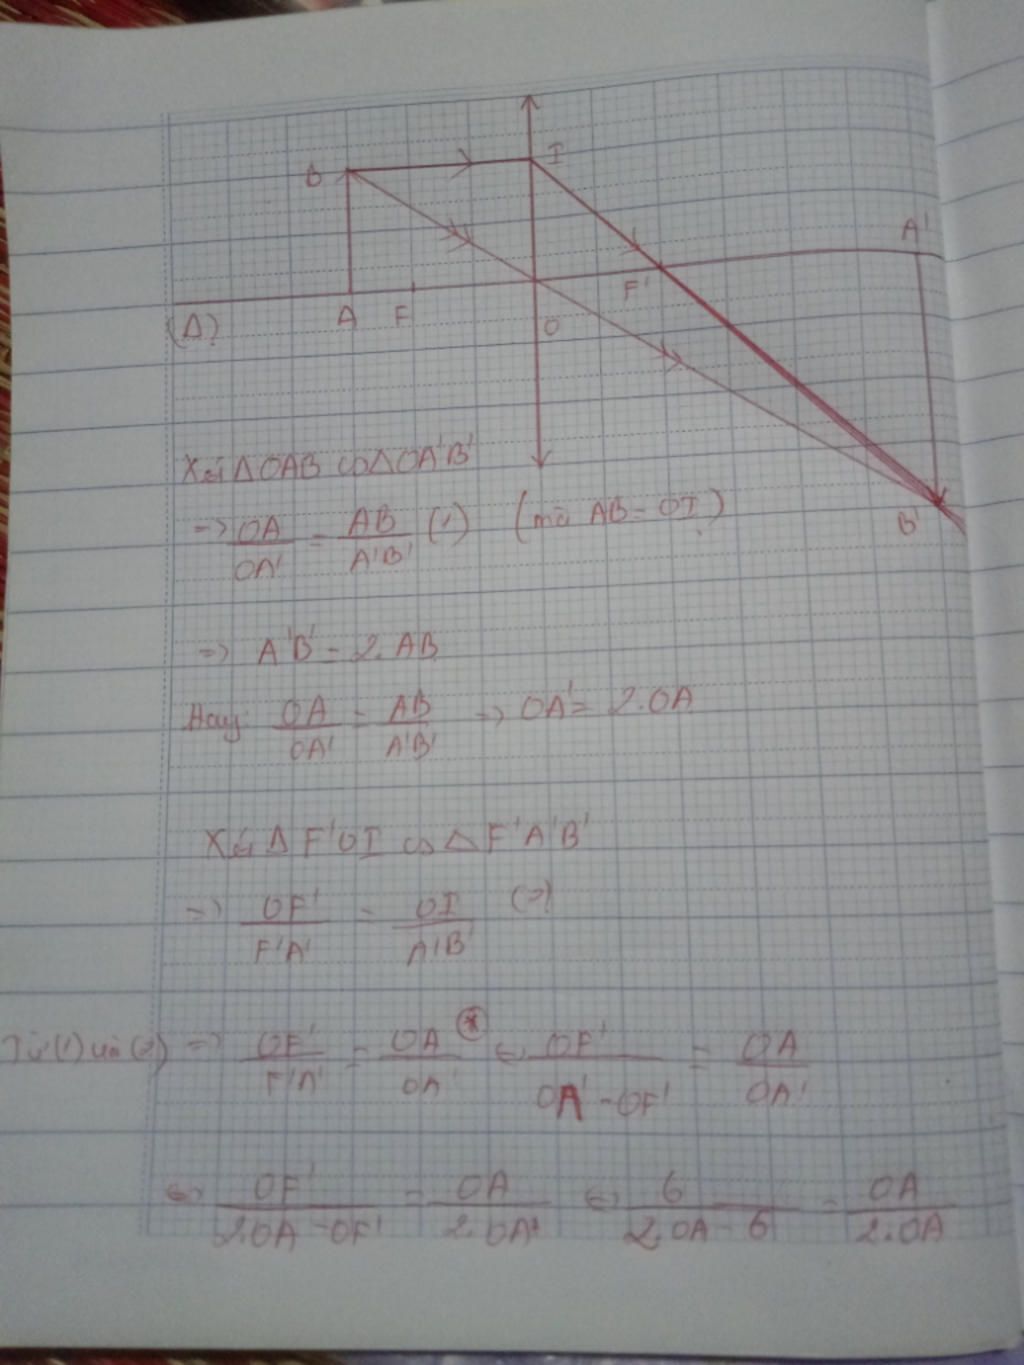 B I A'
(Δ) A F O F' B'
Xét ΔOAB ∽ ΔOA'B'
=> OA/OA' = AB/A'B' (1) (mà AB = OI)
=> A'B' = 2.AB
Hay OA/OA' = AB/A'B' => OA' = 2.OA
Xét Δ F'OI ∽ Δ F'A'B'
=> OF'/F'A' = OI/A'B' (2)
Từ (1) và (2) => OF'/F'A' = OA/OA' (*) <=> OF'/OA' - OF' = OA/OA'
<=> OF'/2.OA - OF' = OA/2.OA' <=> 6/2.OA - 6 = OA/2.OA